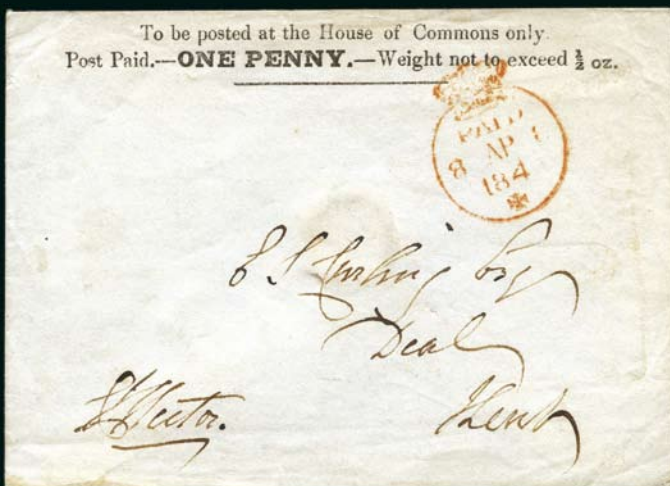 To be posted at the House of Commons only.
Post Paid.—ONE PENNY.—Weight not to exceed ½ oz.
PAID
8 AP 8
184
Esq
Deal
Kent